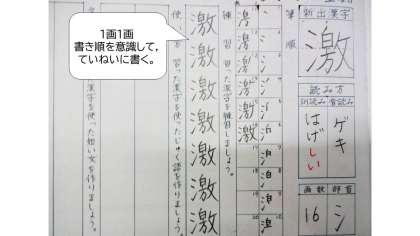 1画1画
書き順を意識して,
ていねいに書く。
新出漢字
激
読み方
訓読み 音読み
はげしい
ゲキ
画数 部首
16 氵
筆順
練習 習った漢字を練習しましょう。
激
激
激
激
激
激
激
使う 習った漢字を使ったじゅく語を作りましょう。
習った漢字を使った短い文を作りましょう。